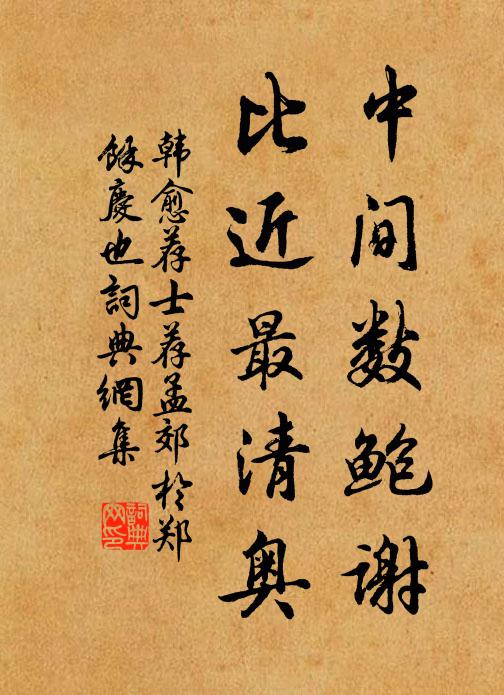 中间数鲍谢
比近最清奥
韩愈荐士荐孟郊於郑
餘慶也詞典網集
詞典
网印